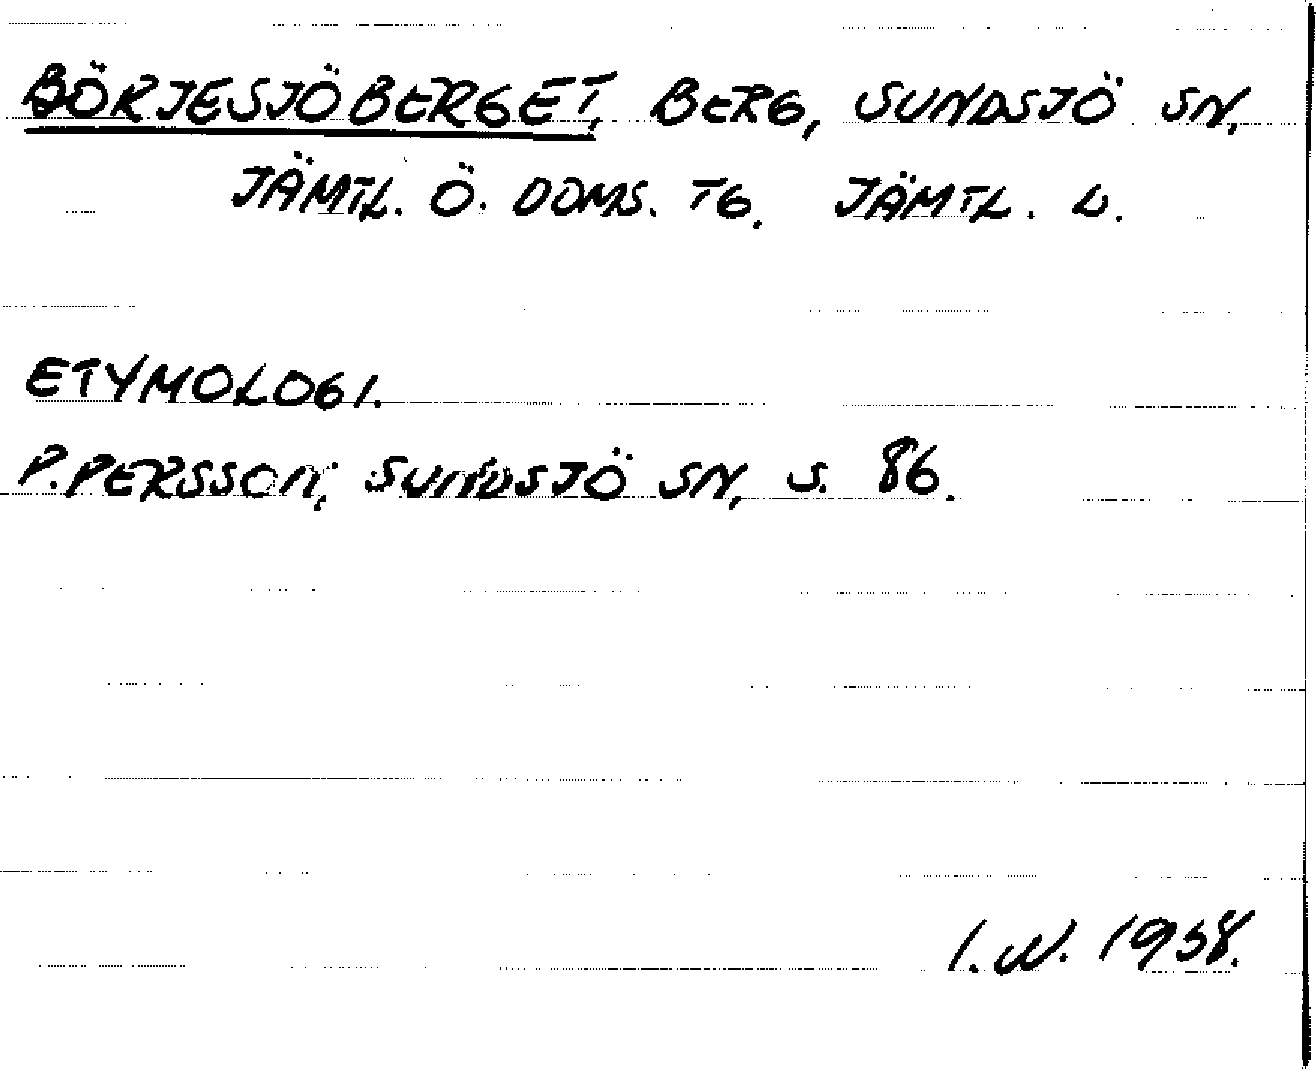 BÖRJESJÖBERGET, BERG, SUNDSJÖ SN,
JÄMTL. Ö. DOMS. TG. JÄMTL. L.
ETYMOLOGI.
P. PERSSON, SUNDSJÖ SN, S. 86.
I. W. 1958.